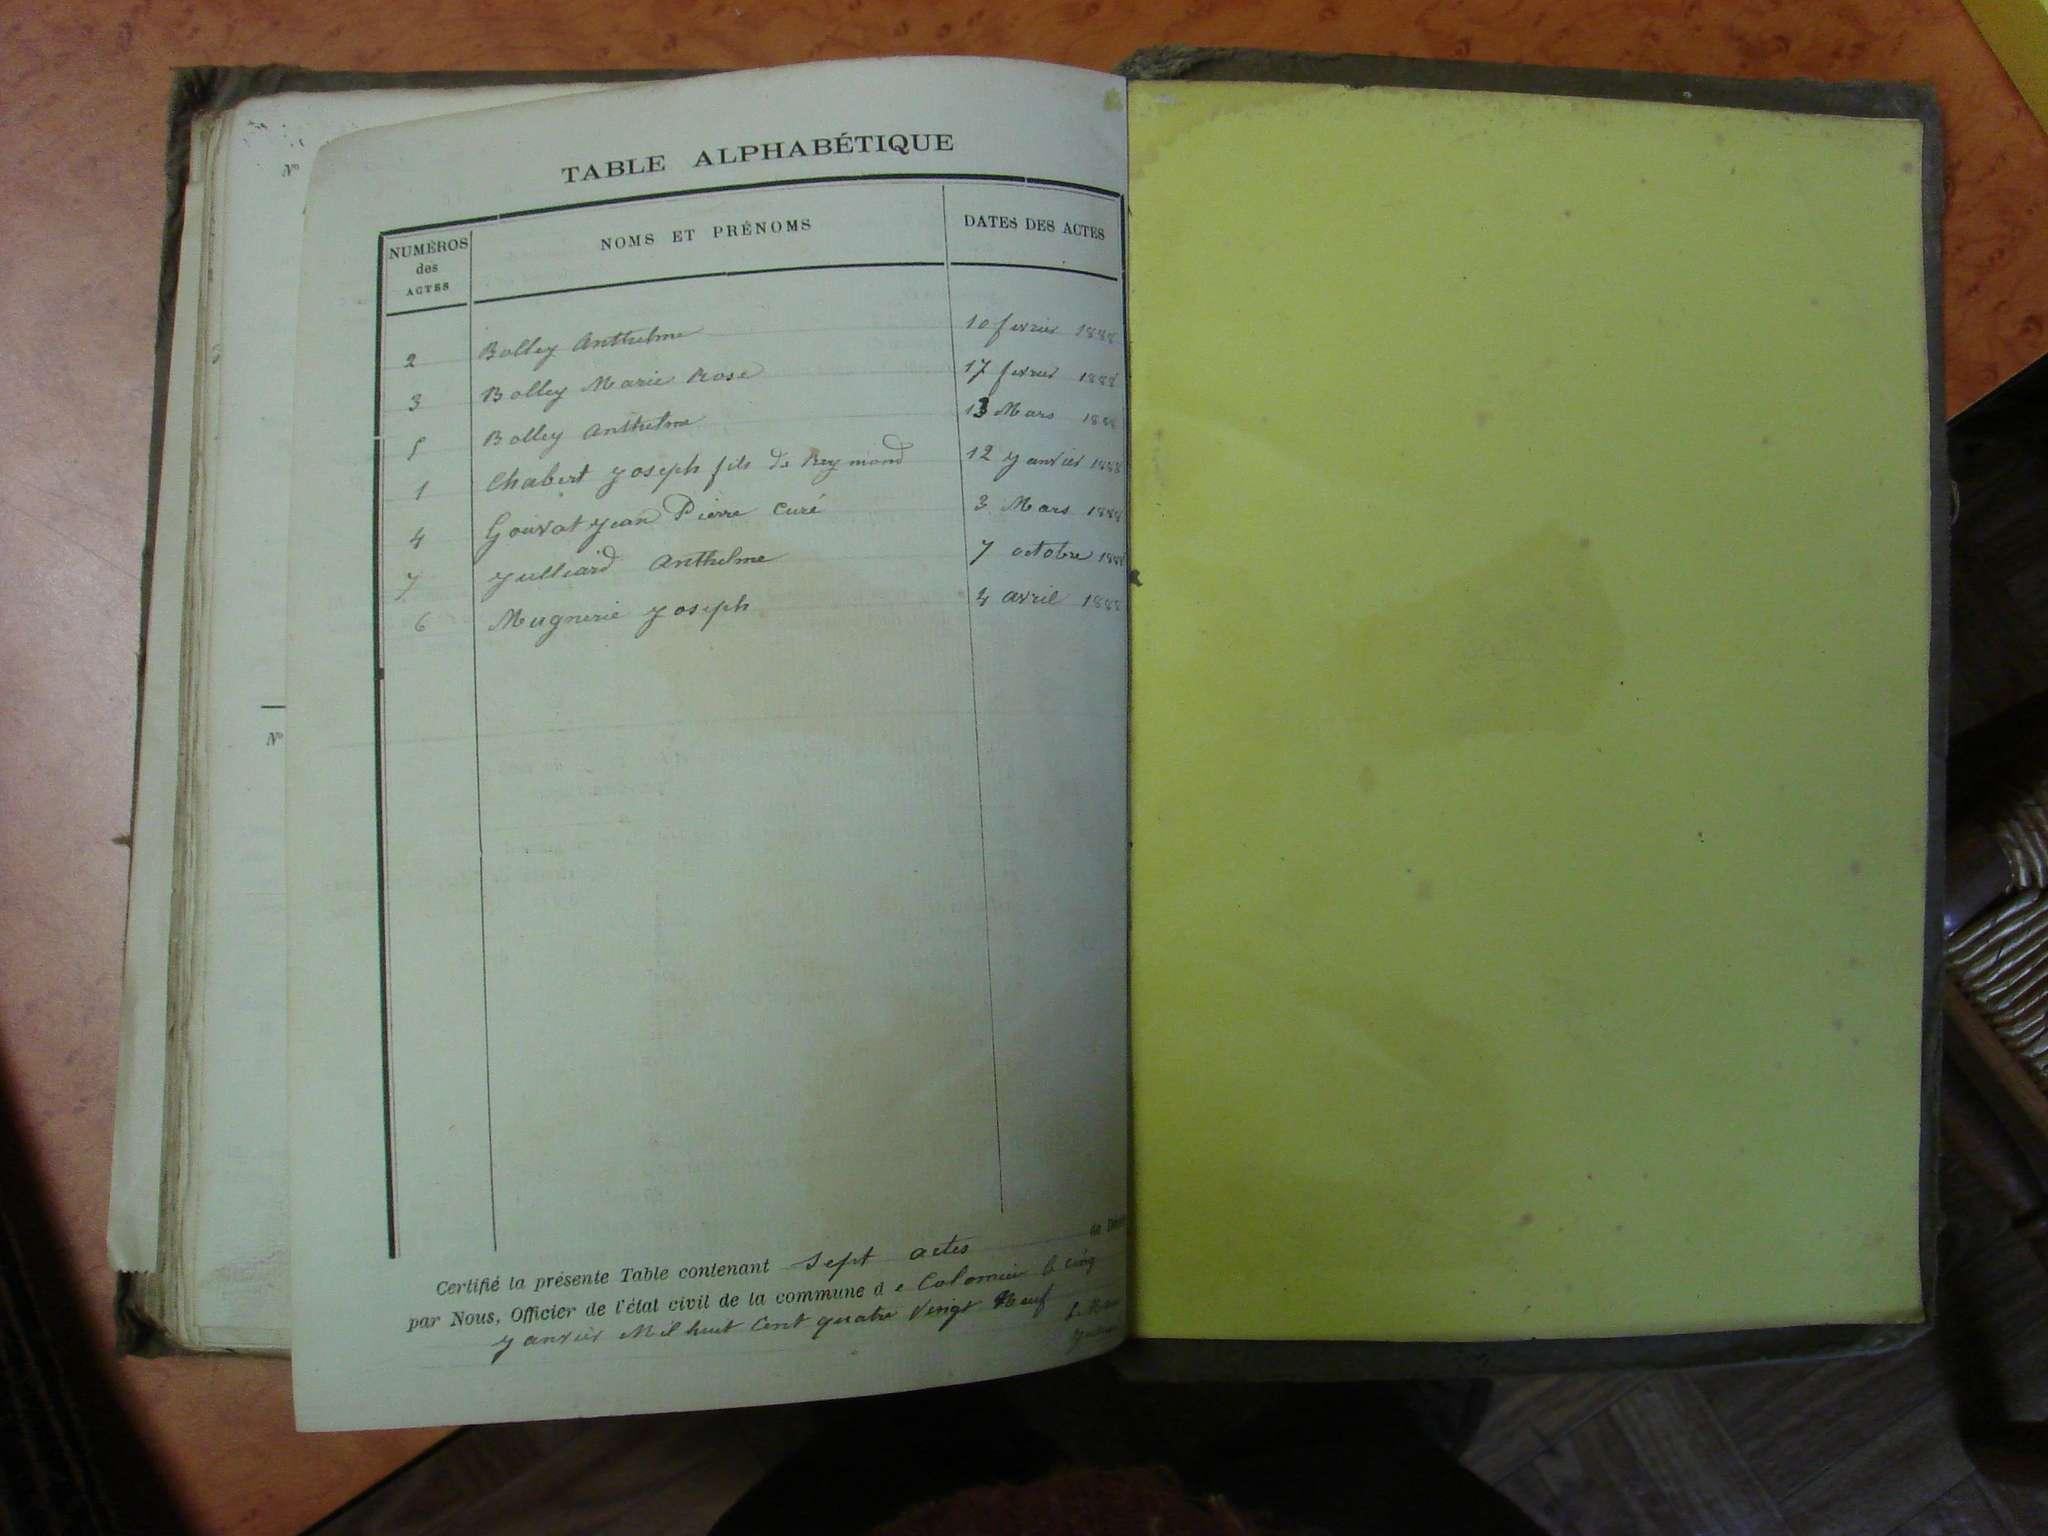 TABLE ALPHABÉTIQUE
NUMÉROS des ACTES NOMS ET PRÉNOMS DATES DES ACTES
2 Bolley Anthelme 10 fevrier 1888
3 Bolley Marie Rose 17 fevrier 1888
5 Bolley Anthelme 13 Mars 1888
1 Chabert Joseph fils de Reymond 12 Janvier 1888
4 Gouvat Jean Pierre Curé 3 Mars 1888
7 Julliard Anthelme 7 octobre 1888
6 Mugnerie Joseph 4 avril 1888
Certifié la présente Table contenant Sept actes de
par Nous, Officier de l'état civil de la commune de Colomieu le cinq
Janvier Mil huit Cent quatre Vingt Neuf
Nº
Nº